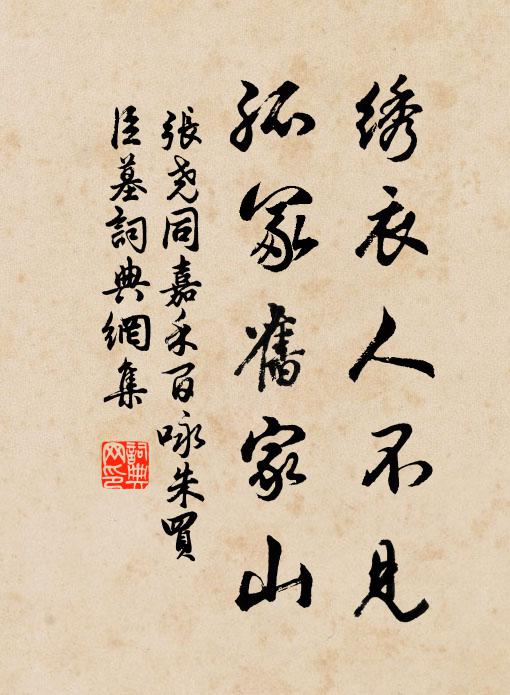 绣衣人不見
孤冢舊家山
張堯同嘉禾百咏朱買
臣墓詞典網集
詞典
网印